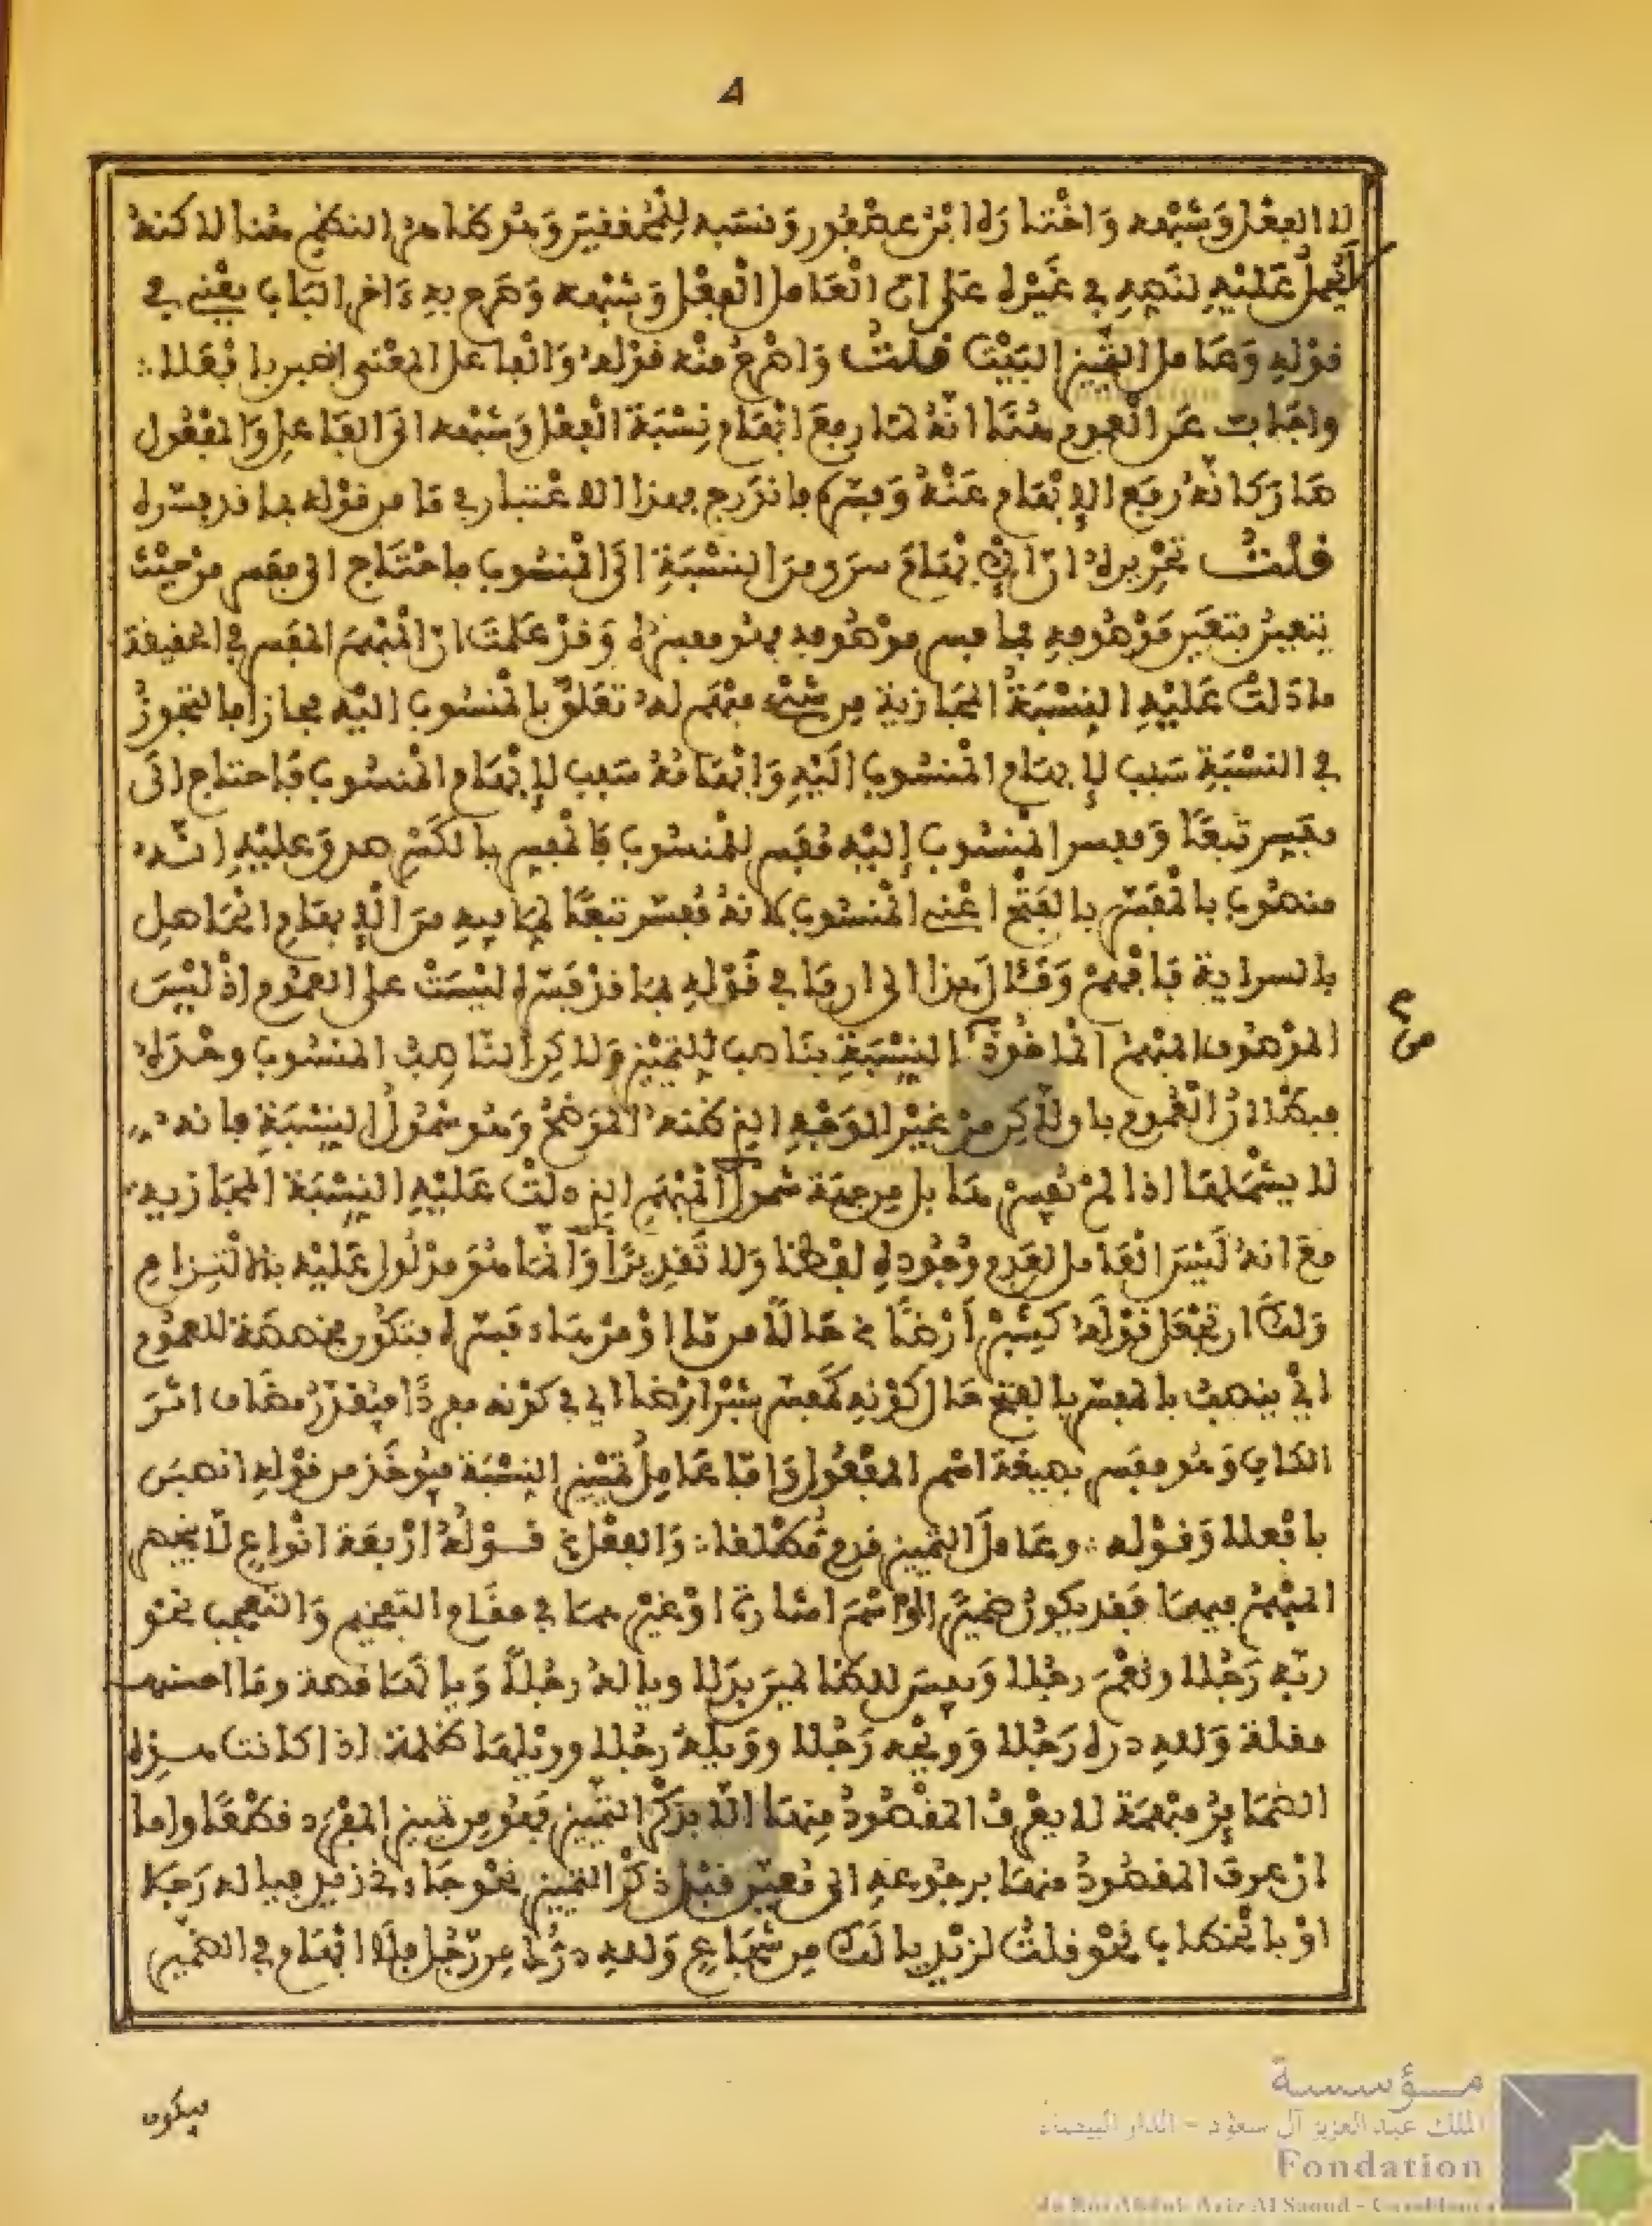 ٨
لا الفعل وشبهه واختاره ابن عصفور ونسبه للمحققين وهو ظاهر النظم هنا لاكنه
عليه لنصه في غيره على ان العامل الفعل وشبهه وصرح به ءاخر الباب يعني في
قوله وعامل التمييز البيت قلت واصرح منه قوله والفاعل المعنى انصبن بافعلا ∴
واجاب عن العموم هنا انه لما رفع ابهام نسبة الفعل وشبهه الى الفاعل والمفعول
صار كانه رفع الابهام عنه وفسره فاندرج بهذا الاعتبار في ما من قوله بما قد فسره
قلت تحريره ان الابهام سرى من النسبة الى المنسوب فاحتاج الى مفسر من حيث
يتعين بتعين موصوفه فما فسر موصوفه فهو مفسره وقد علمت ان المبهم المفسر في الحقيقة
ما دلت عليه النسبة المجازية من شيء مبهم له تعلق بالمنسوب اليه مجازا فالتجوز
في النسبة سبب لابهام المنسوب اليه وابهامه سبب لابهام المنسوب فاحتاج الى
مفسر تبعا ومفسر المنسوب إليه مفسر للمنسوب فالمفسر بالكسر صدق عليه انه
منصوب بالمفسر بالفتح اعني المنسوب لانه مفسر تبعا لما فيه من الابهام الحاصل
بالسراية فافهم وقال هذا الى ان ما في قوله بما قد فسره ليست على العموم إذ ليس
الموصوف المبهم الماخوذ النسبة بناصب للتمييز ولاكن الناصب المنسوب وحده
فبطلان العموم باولاكن من غير الوجه الذي ظنه الموضح وهو شمول النسبة فانه
لا يشملها اذا لم تفسر هنا بل من جهة شمول المبهم الذي دلت عليه النسبة المجازيه
مع انه ليس العامل لعدم وجوده لفظا ولا تقديرا وانما هو مدلول عليه بالالتزام
ولك ان تجعل قوله كشبر أرضا حالا من ما او من هاء فسره فتكون مخصصة للعموم
اي ينصب بالمفسر بالفتح حال كونه كمفسر شبر ارضا اي في كونه مفردا فيقدر مضاف اثر
الكاف وهو مفسر بصيغة اسم المفعول واما عامل تمييز النسبة فيوخذ من قوله انصبن
بافعلا وقوله ∴ وعامل التمييز قدم مطلقا ∴ والفعل قوله أربعة انواع لا ينحصر
المبهم فيها فقد يكون ضميرا او اسم اشارة او غيرهما في مقام التعظيم والتعجب نحو
ربه رجلا ونعم رجلا وبيس للظالمين بدلا وياله رجلا ويا لها قصة وما احسنها
مقلة ولله دره رجلا وويحه رجلا وويله رجلا وويلها كلمة اذا كانت هذه
الضمائر مبهمة لا يعرف المقصود منها الا بذكر التمييز فهو من تمييز المفرد قطعا واما
ان عرف المقصود منها برجوعه الى معين قبل ذكر التمييز نحو جاءني زيد فياله رجلا
او بالخطاب نحو قلت لزيد يا لك من شجاع ولله درك من رجل فلا ابهام في الضمير
صح
فيكون
مؤسسة
الملك عبد العزيز آل سعود - الدار البيضاء
Fondation
du Roi Abdul-Aziz Al Saoud - Casablanca